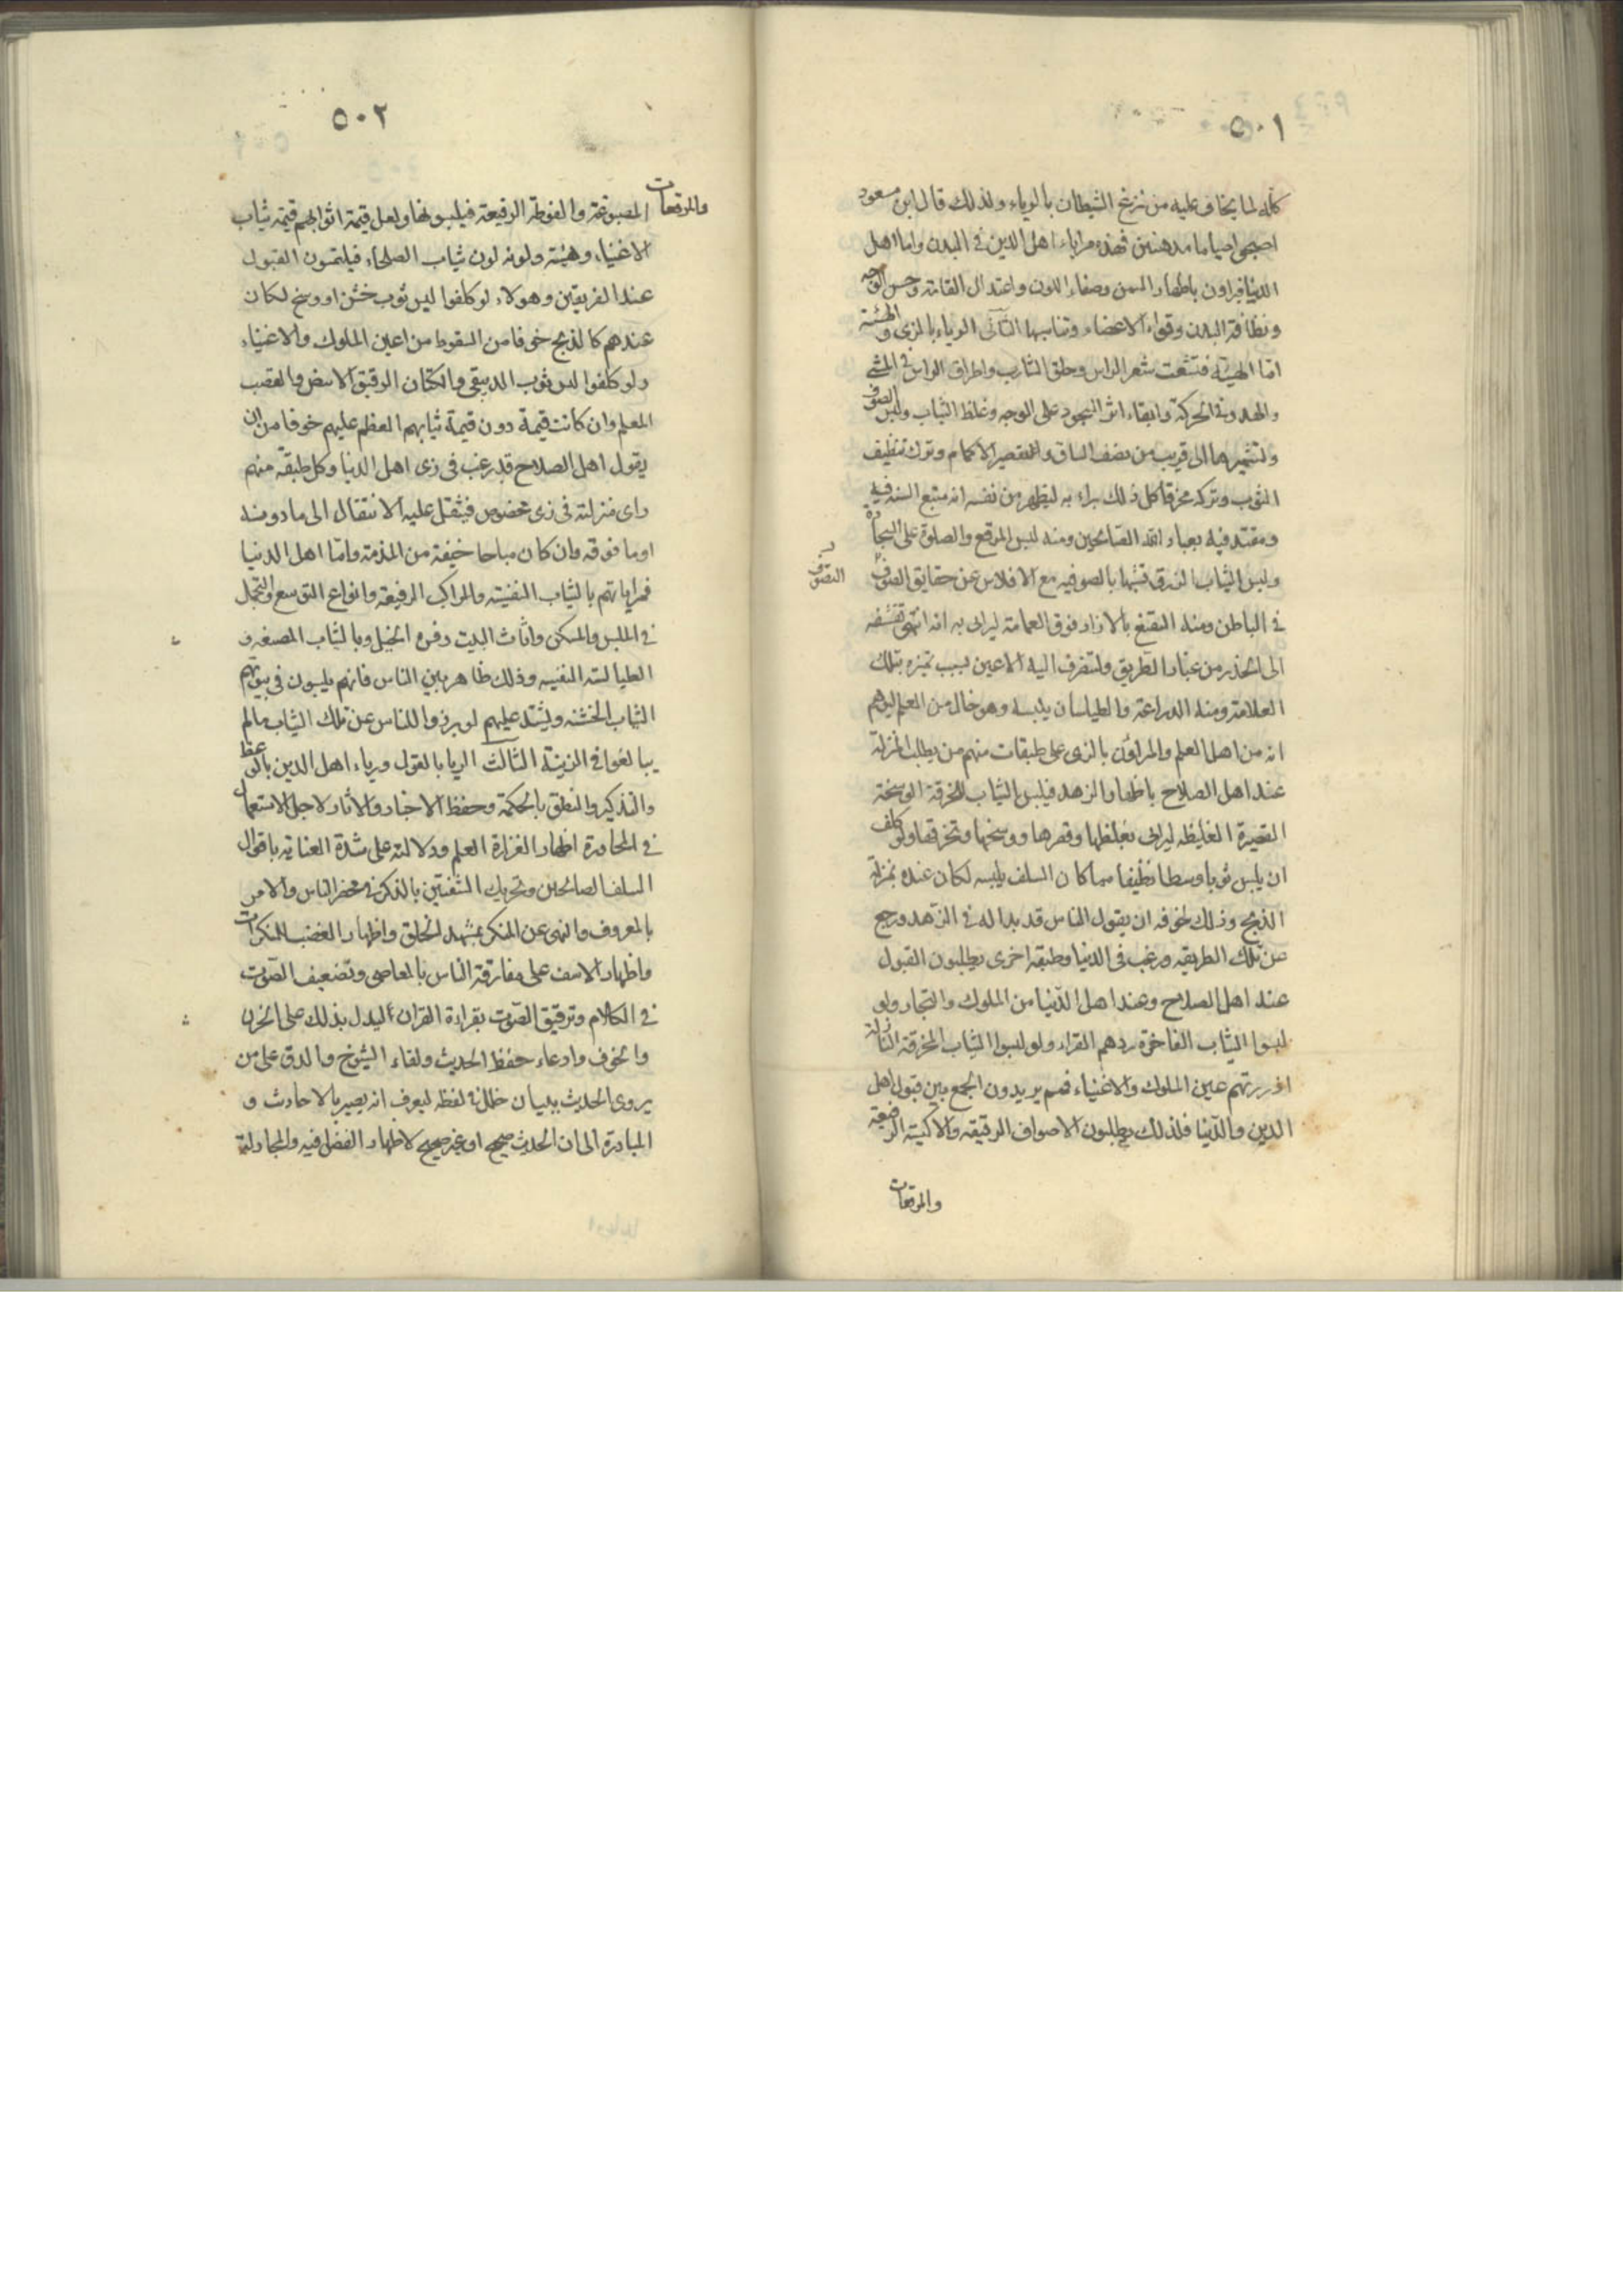 ٥٠١
كله لما يخاف عليه من نزغ الشيطان بالرياء ولذلك قال ابن مسعود
اصبحوا صياما مدهنين فهذه مراياة اهل الدين في البدن واما اهل
الدنيا فيراون باظهار السمن وصفاء اللون واعتدال القامة وحسن الوجه
ونظافة البدن وقوة الاعضاء وتناسبها الثاني الرياء بالزي والهيئة
امّا الهيئة فتشعث شعر الراس وحلق الشارب واطراق الراس في المشي
والهدو في الحركة وابقاء اثر السجود على الوجه وغلظ الثياب ولبس الصوف
وتشميرها الى قريب من نصف الساق وتقصير الاكمام وترك تنظيف
الثوب وتركه مخرقا كل ذلك يراء به ليظهر من نفسه انه متبع السنه فيه
ومقتد فيه بعباد الله الصالحين ومنه لبس المرقع والصلوة على السجادة
ولبس الثياب الزرق تشبها بالصوفيه مع الافلاس عن حقايق الصوف
التصوف
في الباطن ومنه التقنع بالازار فوق العمامة ليراى به انه انتهى تقشفه
الى الحذر من غبار الطريق ولتنصرف اليه الاعين بسبب تميزه بتلك
العلامة ومنه الدراعة والطيلسان يلبسه وهو خال من العلم ليوهم
انه من اهل العلم والمراؤن بالزى على طبقات منهم من يطلب المنزلة
عند اهل الصلاح باظهار الزهد فيلبس الثياب المخرقة الوسخة
القصيرة الغليظه ليراى بغلظها وقصرها ووسخها وتخرقها ولو كلف
ان يلبس ثوبا وسطا نظيفا مما كان السلف يلبسه لكان عنده بمنزلة
الذبح وذلك لخوفه ان يقول الناس قد بدا له في الزهد ورجع
من تلك الطريقه ورغب في الدنيا وطبقه اخرى يطلبون القبول
عند اهل الصلاح وعند اهل الدّنيا من الملوك والتجار ولو
لبسوا الثياب الفاخرة ردهم القراء ولو لبسوا الثياب المخرقة النازلة
ازدرتهم عين الملوك والاغنياء فهم يريدون الجمع بين قبول اهل
الدين والدّنيا فلذلك يطلبون الاصواف الرقيقه والاكسية الرفيعة
والمرقعات
٥٠٢
والمرقعات المصبوغة والفوطة الرفيعة فيلبسونها ولعل قيمة اثوابهم قيمة ثياب
الاغنياء وهيئته ولونه لون ثياب الصلحاء فيلتمسون القبول
عند الفريقين وهولاء لو كلفوا لبس ثوب خشن او وسخ لكان
عندهم كالذبح خوفا من السقوط من اعين الملوك والاغنياء
ولو كلفوا لبس ثوب الدبيقى والكتان الرقيق الابيض والقصب
المعلم وان كانت قيمة دون قيمة ثيابهم العظم عليهم خوفا من ان
يقول اهل الصلاح قد رغب في زى اهل الدنيا وكل طبقة منهم
راى منزلته في زى مخصوص فيثقل عليه الانتقال الى ما دونه
او ما فوقه وان كان مباحا خيفة من المذمة وامّا اهل الدنيا
فمراياتهم بالثياب النفيسة والمراكب الرفيعة وانواع التوسع والتجمل
في الملبس والمسكن واثاث البيت وفره الخيل وبالثياب المصبغه و
الطيالسة النفيسه وذلك ظاهر بين الناس فانهم يلبسون في بيوتهم
الثياب الخشنه ويشتد عليهم لو برزوا للناس عن تلك الثياب مالم
يبالغوا في الزينة الثالث الريا بالقول ورياء اهل الدين بالوعظ
والتذكير والنطق بالحكمة وحفظ الاخبار والاثار لاجل الاستعمال
في المحاورة اظهار الغزارة العلم ودلالته على شدة العناية باقوال
السلف الصالحين وتحريك الشفتين بالذكر في محضر الناس والامر
بالمعروف والنهى عن المنكر بمشهد الخلق واظهار الغضب للمنكرات
واظهار الاسف على مقارفة الناس بالمعاصى وتضعيف الصوت
في الكلام وترقيق الصوت بقراءة القران ليدل بذلك على الحزن
والخوف وادعاء حفظ الحديث ولقاء الشيوخ والدق على من
يروى الحديث ببيان خلل في لفظه ليعرف انه بصير بالاحادث و
المبادرة الى ان الحديث صحيح او غير صحيح لاظهار الفضل فيه والمجادلة